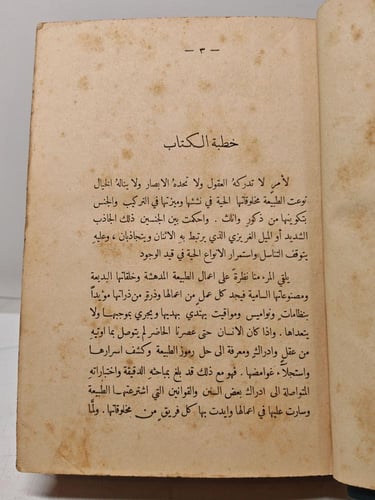 — ٣ —
خطبة الكتاب
لأمرٍ لا تدركهُ العقول ولا تحدهُ الابصار ولا ينالهُ الخيال
نوعت الطبيعة مخلوقاتها الحية في نشئها وميزتها في التركيب والجنس
بتكوينها من ذكورٍ واناث . واحكمت بين الجنسين ذلك الجاذب
الشديد أو الميل الغريزي الذي يرتبط به الاثنان ويتجاذبان ، وعليه
يتوقف التناسل واستمرار الانواع الحية في قيد الوجود
يلقي المرء منا نظرةً على اعمال الطبيعة المدهشة وخلقاتها البديعة
ومصنوعاتها السامية فيجد كل عملٍ من اعمالها وذرةٍ من ذراتها مؤيداً
بنظامات ونواميس ومواقيت يهتدي بهديها ويجري بموجبها ولا
يتعداها . واذا كان الانسان حتى عصرنا الحاضر لم يتوصل بما اوتيه
من عقل وادراك ومعرفة الى حل رموز الطبيعة وكشف اسرارها
واستجلاء غوامضها . فهو مع ذلك قد بلغ بمباحثه الدقيقة واختباراته
المتواصلة الى ادراك بعض السنن والقوانين التي اشترعتها الطبيعة
وسارت عليها في اعمالها وايدت بها كل فريق من مخلوقاتها . ولمَّا